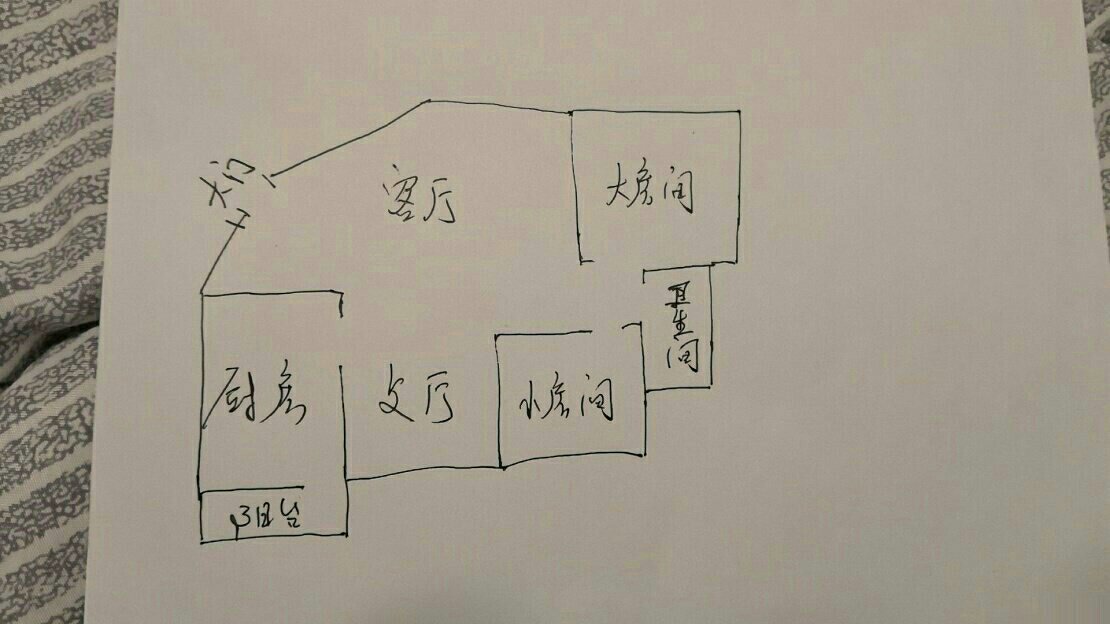 大门
客厅
大房间
卫生间
厨房
文厅
小房间
阳台